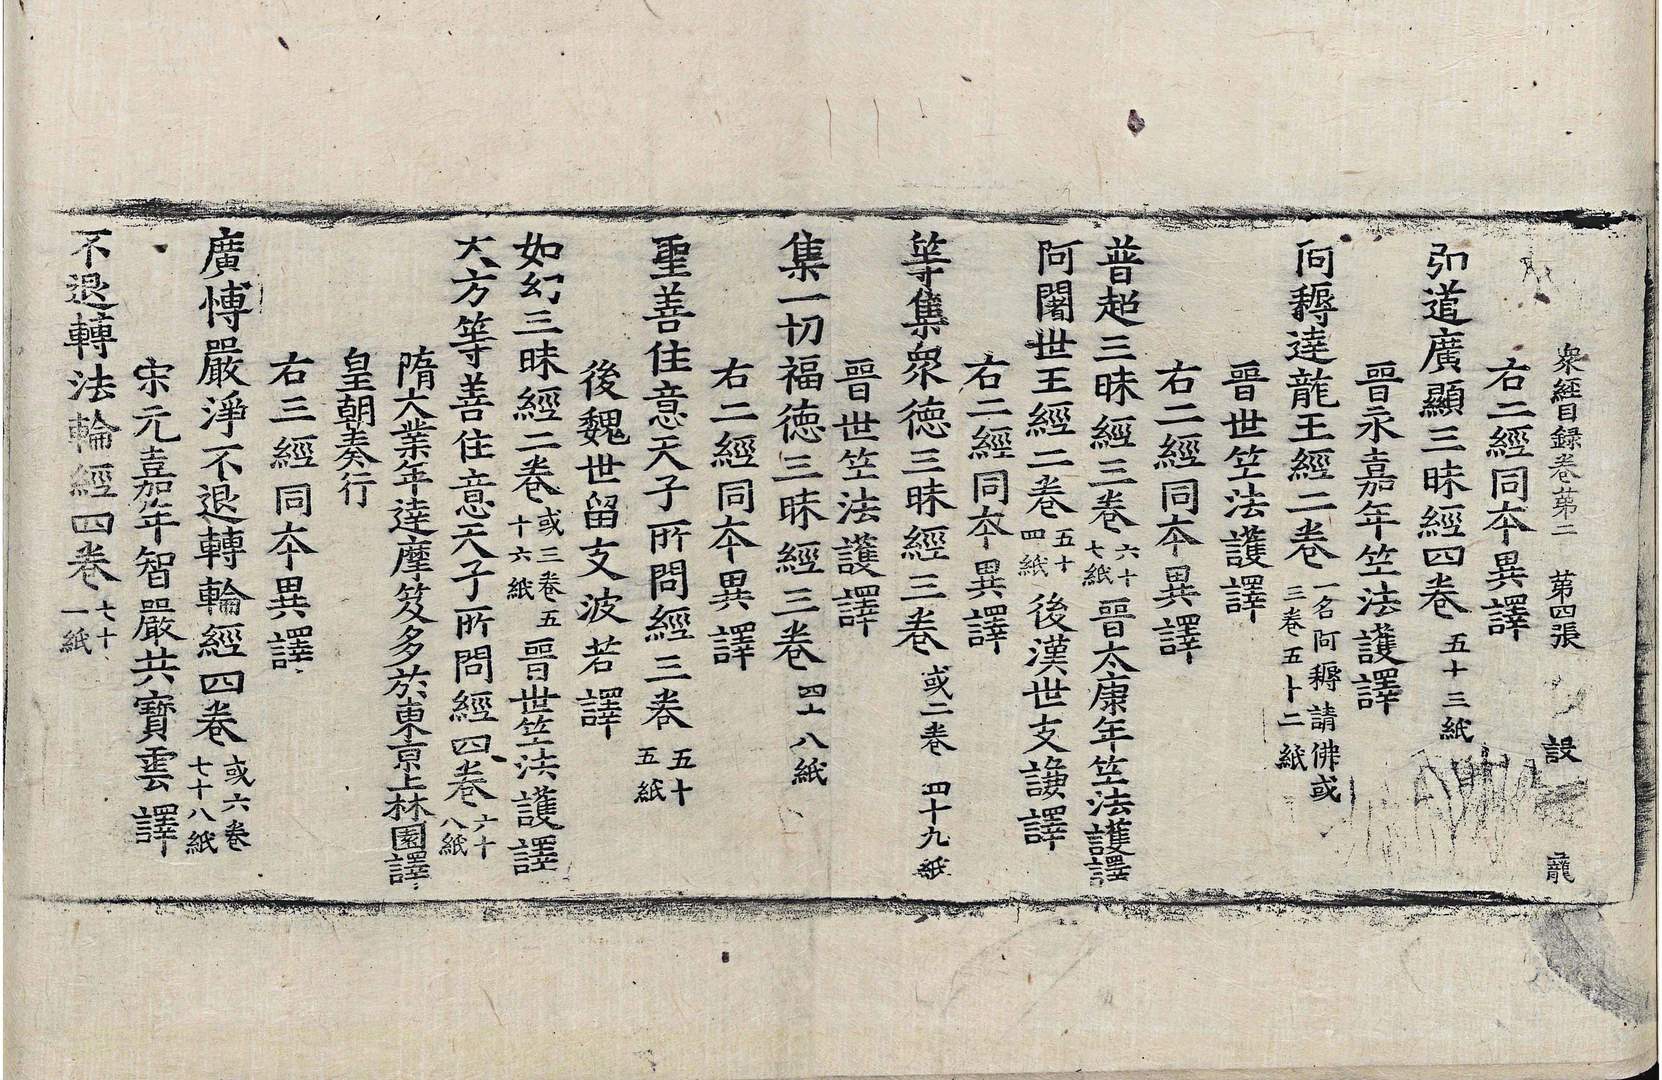 衆經目録卷第二 第四張 設 龍
右二經同本異譯
弘道廣顯三昧經四卷 五十三紙
晉永嘉年竺法護譯
阿耨達龍王經二卷 一名阿耨請佛或三卷五十二紙
晉世竺法護譯
右二經同本異譯
普超三昧經三卷 六十七紙 晉太康年竺法護譯
阿闍世王經二卷 五十四紙 後漢世支謙譯
右二經同本異譯
等集衆德三昧經三卷 或二卷 四十九紙
晉世竺法護譯
集一切福德三昧經三卷 四十八紙
右二經同本異譯
聖善住意天子所問經三卷 五十五紙
後魏世留支波若譯
如幻三昧經二卷 或三卷五十六紙 晉世竺法護譯
大方等善住意天子所問經四卷 六十八紙
隋大業年達摩笈多於東京上林園譯
皇朝奏行
右三經同本異譯
廣博嚴淨不退轉輪經四卷 或六卷七十八紙
宋元嘉年智嚴共寶雲譯
不退轉法輪經四卷 七十一紙